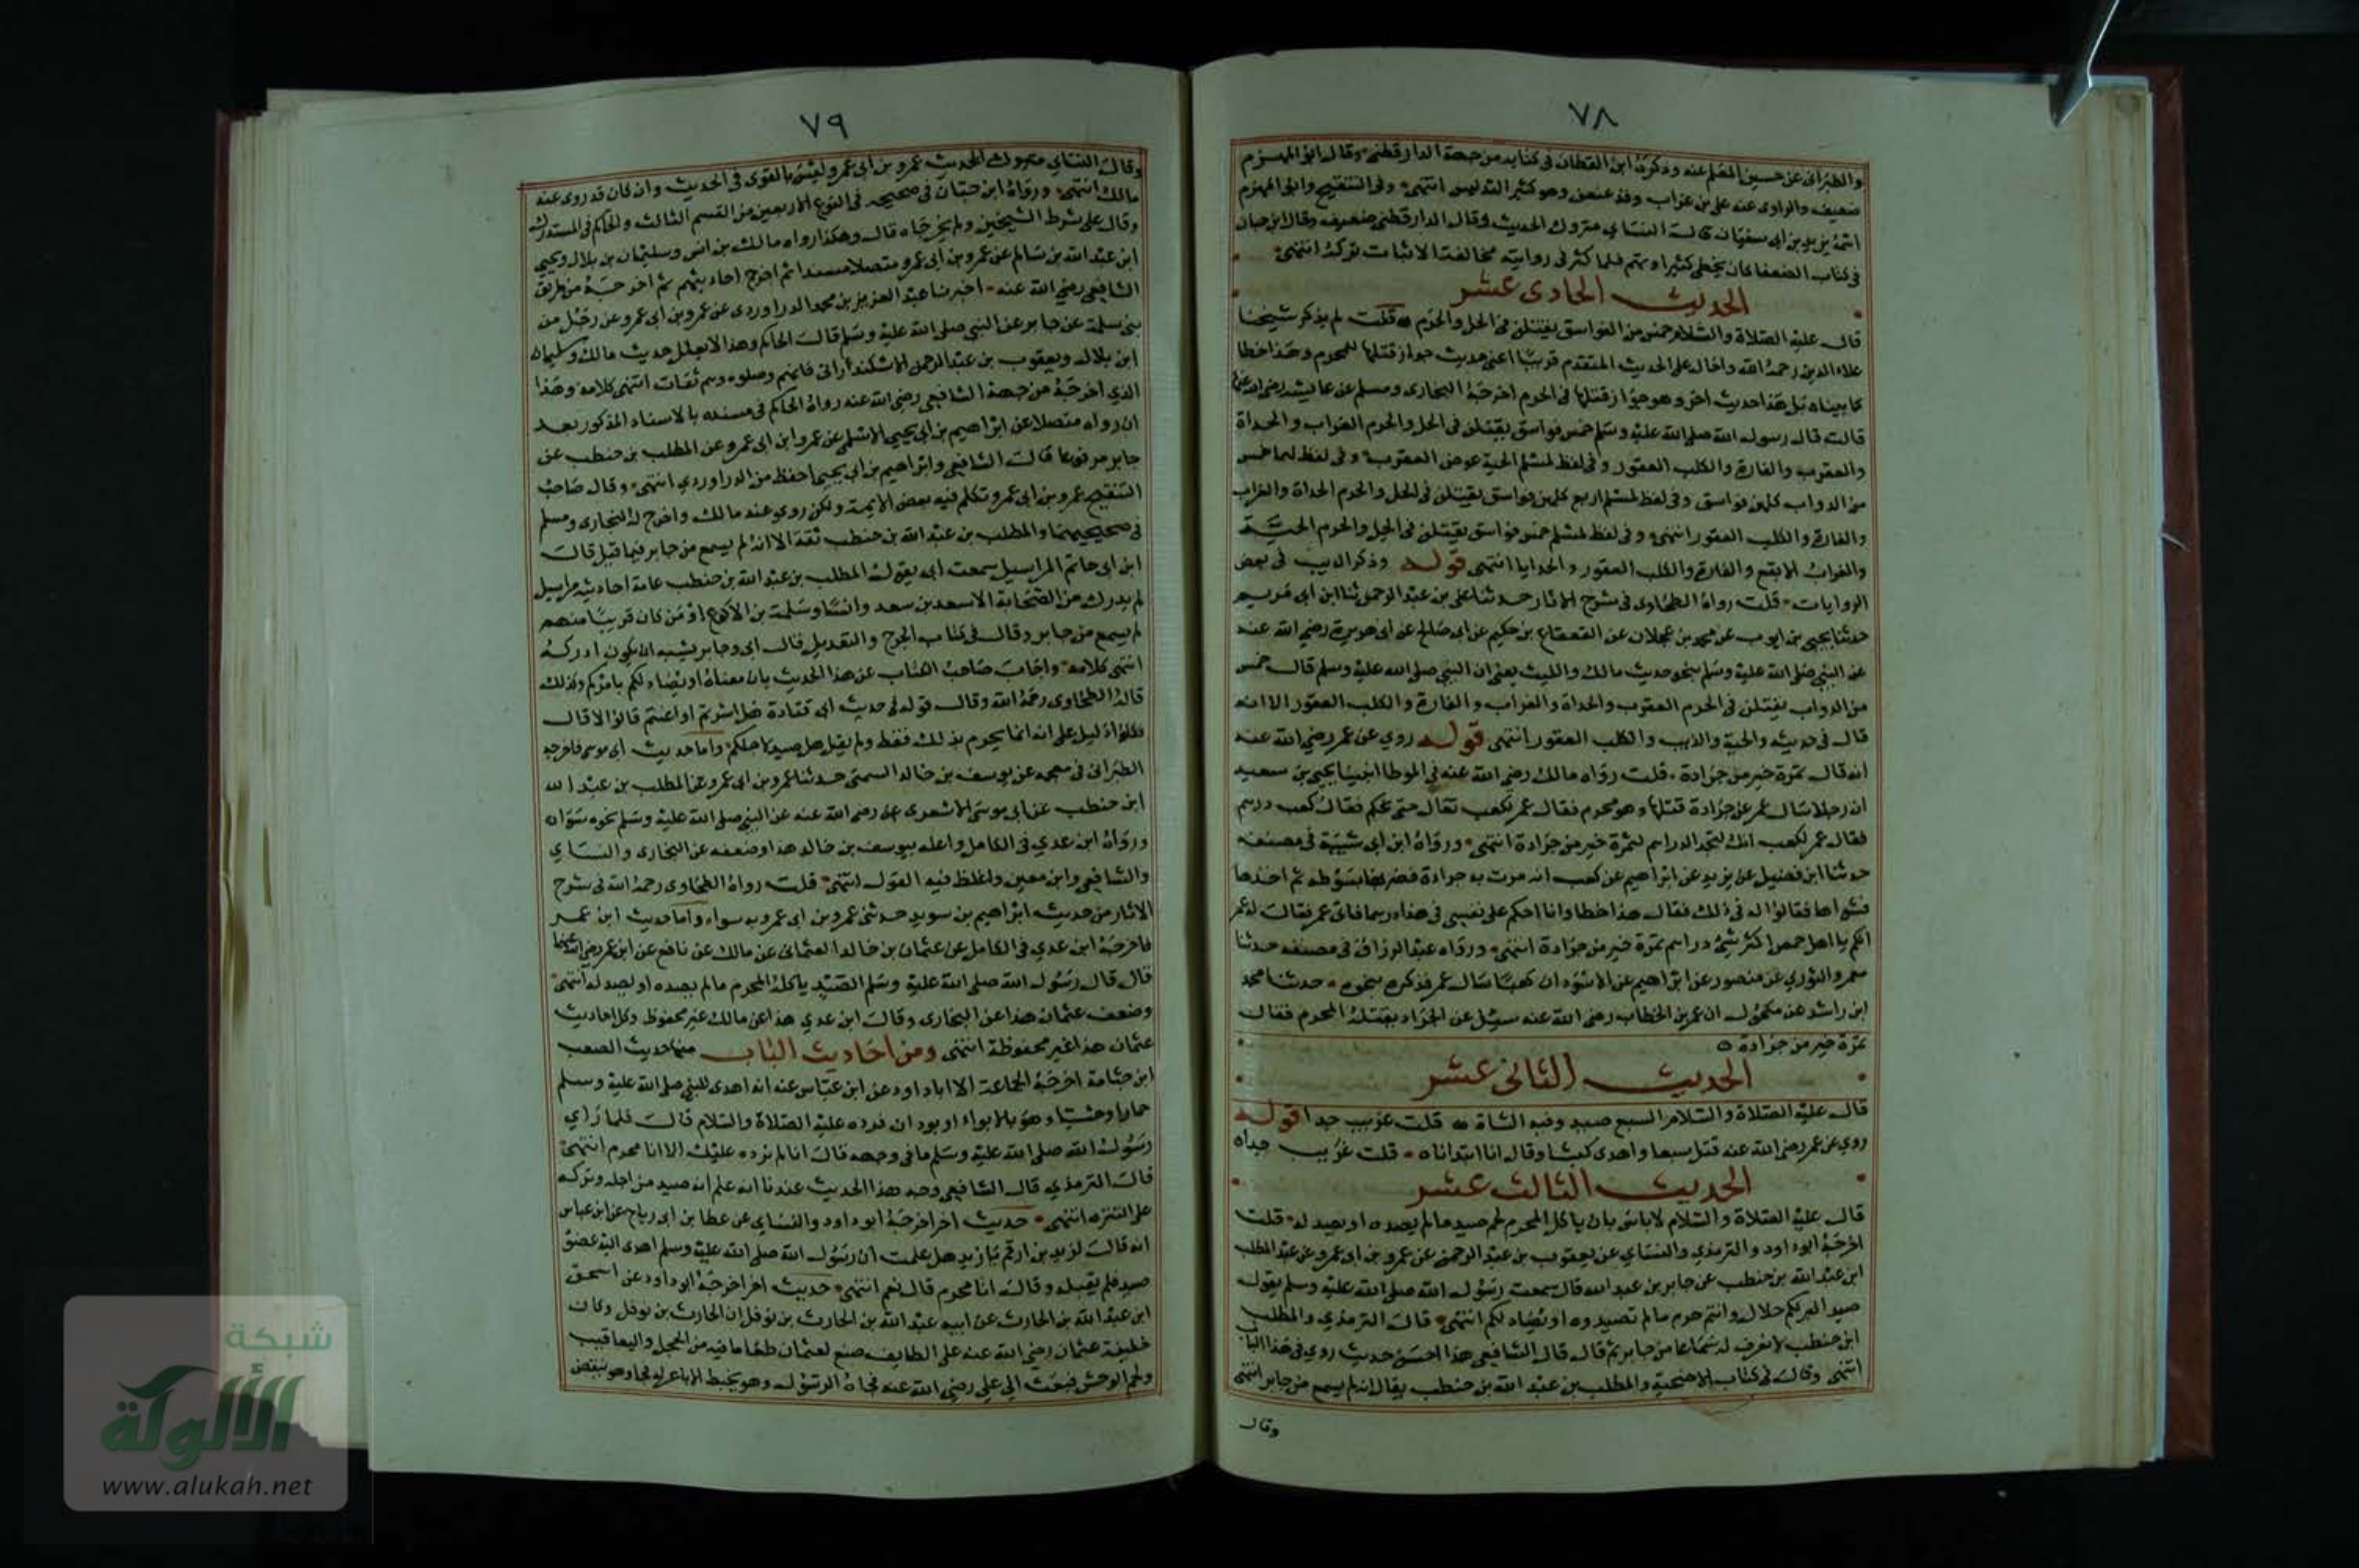 ٧٨
والطبراني عن حسين المعلم عنه وذكره ابن القطان في كتابه من جهة الدارقطني وقال ابو المهزم
ضعيف والراوي عنه علي بن غراب وقد عنعن وهو كثير التدليس انتهى وفي التنقيح وابي المهزم
اسمه يزيد بن ابي سفيان قال النساي متروك الحديث وقال الدارقطني ضعيف وقال ابن حبان
في كتاب الضعفا كان يخطي كثيرا ويهم فلما كثر في روايته مخالفة الاثبات ترك انتهى
الحديث الحادي عشر
قال عليه الصلاة والسلام خمس من الفواسق يقتلن في الحل والحرم قلت لم يذكر شيخنا
علاء الدين رحمه الله واحال على الحديث المتقدم قريبا اعني حديث جواز قتلها للمحرم وهذا خطا
كما بيناه بل هذا حديث اخر وهو جواز قتلها في الحرم اخرجه البخاري ومسلم عن عايشة رضي الله عنها
قالت قال رسول الله صلى الله عليه وسلم خمس فواسق يقتلن في الحل والحرم الغراب والحداة
والعقرب والفارة والكلب العقور وفي لفظ لمسلم الحية عوض العقرب وفي لفظ لهما خمس
من الدواب كلهن فواسق وفي لفظ لمسلم اربع كلهن فواسق يقتلن في الحل والحرم الحداة والغراب
والفارة والكلب العقور انتهى وفي لفظ لمسلم خمس فواسق يقتلن في الحل والحرم الحية
والغراب الابقع والفارة والكلب العقور والحدايا انتهى قوله وذكر الذيب في بعض
الروايات قلت رواه الطحاوي في شرح الاثار حدثنا علي بن عبد الرحمن ثنا ابن ابي مريم
حدثنا يحيى بن ايوب عن محمد بن عجلان عن القعقاع بن حكيم عن ابي صالح عن ابي هريرة رضي الله عنه
عن النبي صلى الله عليه وسلم بنحو حديث مالك والليث يعني ان النبي صلى الله عليه وسلم قال خمس
من الدواب يقتلن في الحرم العقرب والحداة والغراب والفارة والكلب العقور الا انه
قال في حديثه والحية والذيب والكلب العقور انتهى قوله روي عن عمر رضي الله عنه
انه قال تمرة خير من جرادة قلت رواه مالك رضي الله عنه في الموطا انبينا يحيى بن سعيد
ان رجلا سال عمر عن جرادة قتلها وهو محرم فقال عمر لكعب تعال حتى نحكم فقال كعب درهم
فقال عمر لكعب انك لتجد الدراهم لتمرة خير من جرادة انتهى ورواه ابن ابي شيبة في مصنفه
حدثنا ابن فضيل عن يزيد عن ابراهيم عن كعب انه مرت به جرادة فضربها بسوطه ثم اخذها
فشواها فقالوا له في ذلك فقال هذا خطا وانا احكم على نفسي في هذا درهما فاتى عمر فقال له عمر
انكم يا اهل حمص اكثر شيء دراهم تمرة خير من جرادة انتهى ورواه عبد الرزاق في مصنفه حدثنا
معمر والثوري عن منصور عن ابراهيم عن الاسود ان كعبا سال عمر فذكره بنحوه حدثنا محمد
ابن راشد عن مكحول ان عمر بن الخطاب رضي الله عنه سيل عن الجراد يقتله المحرم فقال
تمرة خير من جرادة
الحديث الثاني عشر
قال عليه الصلاة والسلام السبع صيد وفيه الشاة قلت غريب جدا قوله
روي عن عمر رضي الله عنه قتل سبعا واهدى كبشا وقال انا ابتداناه قلت غريب جدا
الحديث الثالث عشر
قال عليه الصلاة والسلام لا باس بان ياكل المحرم لحم صيد ما لم يصده او يصد له قلت
اخرجه ابو داود والترمذي والنساي عن يعقوب بن عبد الرحمن عن عمرو بن ابي عمرو عن عبد المطلب
ابن عبد الله بن حنطب عن جابر بن عبد الله قال سمعت رسول الله صلى الله عليه وسلم يقول
صيد البر لكم حلال وانتم حرم ما لم تصيدوه او يصاد لكم انتهى قال الترمذي والمطلب
ابن حنطب لا نعرف له سماعا من جابر ثم قال قال الشافعي هذا احسن حديث روي في هذا الباب
انتهى وقال في كتاب الاضحية والمطلب بن عبد الله بن حنطب يقال انه لم يسمع من جابر انتهى
وقال
٧٩
وقال النساي متروك الحديث عمرو بن ابي عمرو ليس بالقوي في الحديث وان كان قد روى عنه
مالك انتهى ورواه ابن حبان في صحيحه في النوع الاربعين من القسم الثالث والحاكم في المستدرك
وقال على شرط الشيخين ولم يخرجاه قال وهكذا رواه مالك بن انس وسليمان بن بلال ويحيى
ابن عبد الله بن سالم عن عمرو بن ابي عمرو متصلا مسندا ثم اخرج احاديثهم ثم اخرجه من طريق
الشافعي رضي الله عنه اخبرنا عبد العزيز بن محمد الدراوردي عن عمرو بن ابي عمرو عن رجل من
بني سلمة عن جابر عن النبي صلى الله عليه وسلم قال الحاكم وهذا لا يعلل حديث مالك وسليمان
ابن بلال ويعقوب بن عبد الرحمن الاسكندراني فانهم وصلوه وهم ثقات انتهى كلامه وهذا
الذي اخرجه من جهة الشافعي رضي الله عنه رواه الحاكم في مسنده بالاسناد المذكور بعد
ان رواه متصلا عن ابراهيم بن ابي يحيى الاسلمي عن عمرو ابن ابي عمرو عن المطلب بن حنطب عن
جابر مرفوعا قال الشافعي وابراهيم بن ابي يحيى احفظ من الدراوردي انتهى وقال صاحب
التنقيح عمرو بن ابي عمرو تكلم فيه بعض الايمة ولكن روي عنه مالك واخرج له البخاري ومسلم
في صحيحيهما والمطلب بن عبد الله بن حنطب ثقة الا انه لم يسمع من جابر فيما قيل قال
ابن ابي حاتم المراسيل سمعت ابي يقول المطلب بن عبد الله بن حنطب عامة احاديثه مراسيل
لم يدرك من الصحابة الا سعد بن سعد وانسا وسلمة بن الاكوع او من كان قريبا منهم
لم يسمع من جابر وقال في كتاب الجرح والتعديل قال ابي وجابر يشبه ان يكون ادركه
انتهى كلامه واجاب صاحب الكتاب عن هذا الحديث بان معناه او يصاد لكم بامركم وكذلك
قال الطحاوي رحمه الله وقال قوله في حديث ابي قتادة هل اشرتم او اعنتم قالوا لا قال
فكلوا دليل على انه انما يحرم بذلك فقط ولم يقل هل صيد لاجلكم واما حديث ابي موسى فاخرجه
الطبراني في معجمه عن يوسف بن خالد السمتي حدثنا عمرو بن ابي عمرو عن المطلب بن عبد الله
ابن حنطب عن ابي موسى الاشعري رضي الله عنه عن النبي صلى الله عليه وسلم نحوه سواء
ورواه ابن عدي في الكامل واعله بيوسف بن خالد هذا وضعفه عن البخاري والنساي
والشافعي وابن معين واغلظ فيه القول انتهى قلت رواه الطحاوي رحمه الله في شرح
الاثار من حديث ابراهيم بن سويد حدثني عمرو بن ابي عمرو به سواء واما حديث ابن عمر
فاخرجه ابن عدي في الكامل عن عثمان بن خالد العثماني عن مالك عن نافع عن ابن عمر رضي الله عنهما
قال قال رسول الله صلى الله عليه وسلم الصيد ياكله المحرم ما لم يصده او يصد له انتهى
وضعف عثمان هذا عن البخاري وقال ابن عدي هذا عن مالك غير محفوظ وكل احاديث
عثمان هذا غير محفوظة انتهى ومن احاديث الباب منها حديث الصعب
ابن جثامة اخرجه الجماعة الا ابا داود عن ابن عباس عنه انه اهدى للنبي صلى الله عليه وسلم
حمارا وحشيا وهو بالابواء او بودان فرده عليه الصلاة والسلام قال فلما راي
رسول الله صلى الله عليه وسلم ما في وجهه قال انا لم نرده عليك الا انا محرم انتهى
قال الترمذي قال الشافعي وجه هذا الحديث عندنا انه علم انه صيد من اجله وتركه
على التنزه انتهى حديث اخر اخرجه ابو داود والنساي عن عطا بن ابي رباح عن ابن عباس
انه قال لزيد بن ارقم يا زيد هل علمت ان رسول الله صلى الله عليه وسلم اهدي اليه عضو
صيد فلم يقبله وقال انا محرم قال نعم انتهى حديث اخر اخرجه ابو داود عن اسحق
ابن عبد الله بن الحارث عن ابيه عبد الله بن الحارث بن نوفل ان الحارث بن نوفل وكان
خليفة عثمان رضي الله عنه على الطايف صنع لعثمان طعاما فيه من الحجل واليعاقيب
ولحم الوحش فبعث الى علي رضي الله عنه فجاه الرسول وهو يخبط لاباعر له فجا وهو ينفض
شبكة
الألوكة
www.alukah.net